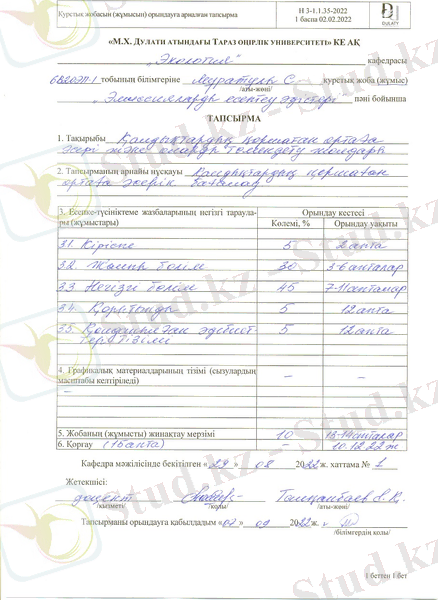 Курстық жобасын (жұмысын) орындауға арналған тапсырма
Н 3-1.1.35-2022
1 баспа 02.02.2022
DULATY
«М.Х. ДУЛАТИ АТЫНДАҒЫ ТАРАЗ ӨҢІРЛІК УНИВЕРСИТЕТІ» КЕ АҚ
„Экология" кафедрасы
6В20ЭП-1 тобының білімгеріне Мұратұлы С. курстық жоба (жұмыс)
/аты-жөні/
„Эмиссияларды есептеу әдістері" пәні бойынша
ТАПСЫРМА
1. Тақырыбы Қалдықтардың қоршаған ортаға
әсері және оларды төмендету жолдары
2. Тапсырманың арнайы нұсқауы Қалдықтардың қоршаған
ортаға әсерін бағалау
3. Есепке-түсініктеме жазбаларының негізгі тараулары (жұмыстары)
Орындау кестесі
Көлемі, % Орындау уақыты
3.1. Кіріспе 5 2 апта
3.2. Жалпы бөлім 30 3-6 апталар
3.3 Негізгі бөлім 45 7-11 апталар
3.4. Қорытынды 5 12 апта
3.5. Қолданылған әдебиет- 5 12 апта
тер тізімі
4. Графикалық материалдарының тізімі (сызулардың масштабы келтіріледі) – –
5. Жобаның (жұмысты) жинақтау мерзімі 10 13-14 апталар
6. Қорғау (15 апта) – 10.12.22 ж
Кафедра мәжілісінде бекітілген «29» 08 2022 ж. хаттама № 1
Жетекшісі:
доцент
/қызметі/ /қолы/ /аты-жөні/
Тапсырманы орындауға қабылдадым «02» 09 2022 ж.
/білімгердің қолы/
1 беттен 1 бет
Stud.kz